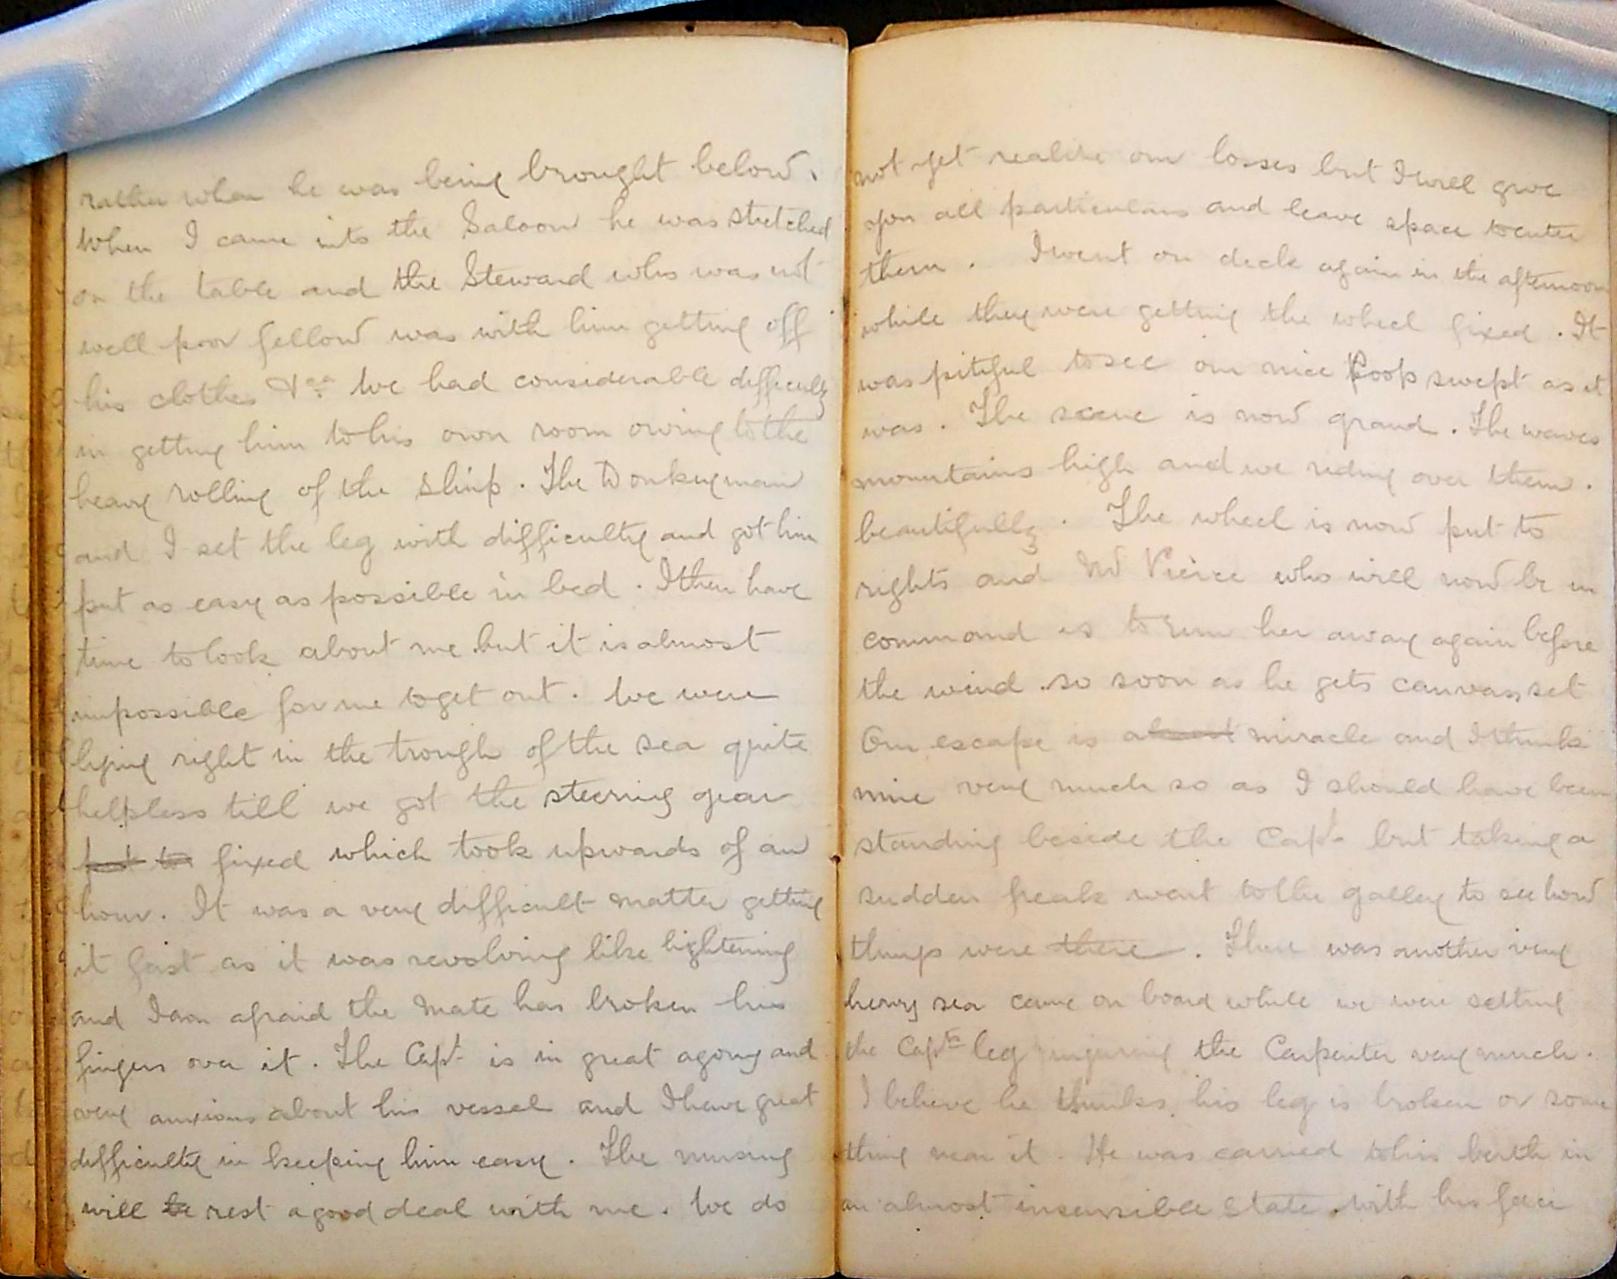 rather when he was being brought below.
When I came into the Saloon he was stretched
on the table and the Steward who was not
well poor fellow was with him getting off
his clothes &cc We had considerable difficulty
in getting him to his own room owing to the
heavy rolling of the ship. The Donkeyman
and I set the leg with difficulty and got him
put as easy as possible in bed. I then have
time to look about me but it is almost
impossible for me to get out. We were
lying right in the trough of the sea quite
helpless till we got the steering gear
put to fixed which took upwards of an
hour. It was a very difficult matter getting
it fast as it was revolving like lightening
and I am afraid the Mate has broken his
fingers over it. The Capt. is in great agony and
very anxious about his vessel and I have great
difficulty in keeping him easy. The nursing
will be rest a good deal with me. We do
not yet realise our losses but I will give
you all particulars and leave space to enter
them. I went on deck again in the afternoon
while they were getting the wheel fixed. It
was pitiful to see our nice Poop swept as it
was. The scene is now grand. The waves
mountains high and we riding over them.
beautifully. The wheel is now put to
rights and Mr Pierce who will now be in
command is to run her away again before
the wind so soon as he gets canvas set
Our escape is almost miracle and I think
mine very much so as I should have been
standing beside the Capt. but taking a
sudden freak went to the galley to see how
things were there. There was another very
heavy sea came on board while we were setting
the Capts leg injuring the Carpenter very much.
I believe he thinks his leg is broken or some
thing near it. He was carried to his berth in
an almost insensible state with his face